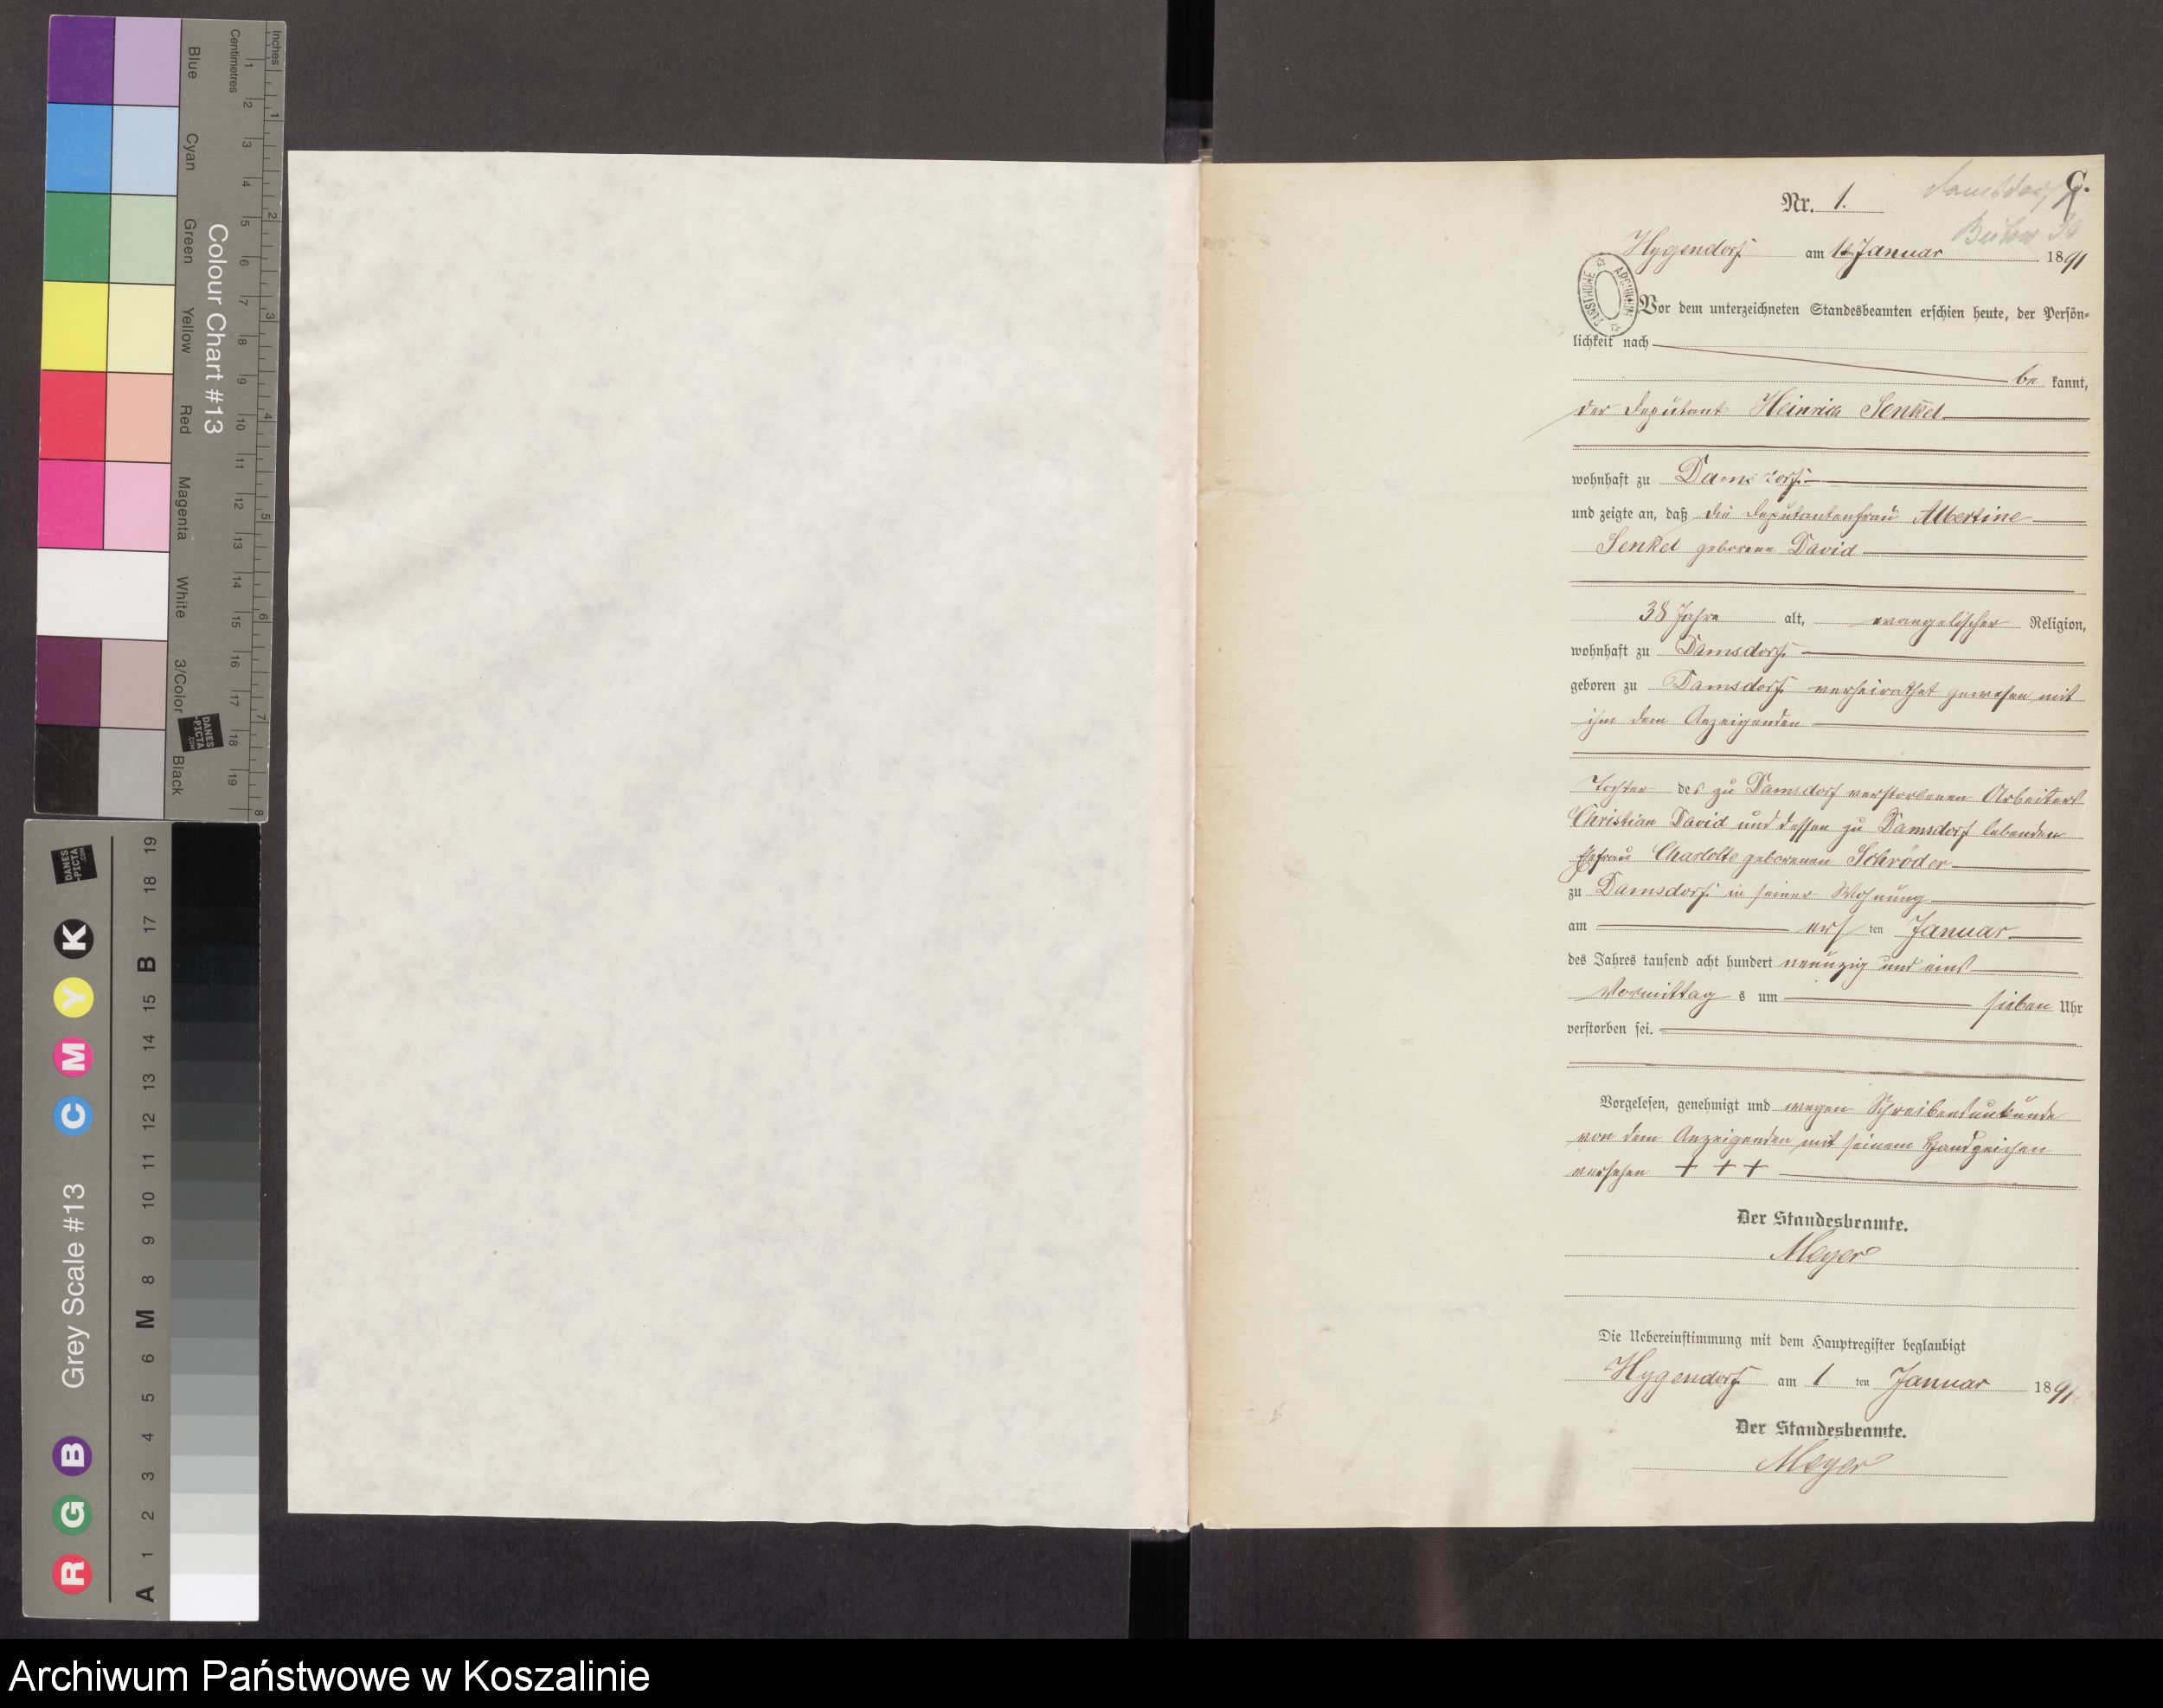 Inches
Centimetres
Colour Chart #13
Blue
Cyan
Green
Yellow
Red
Magenta
White
3/Color
Black
1 2 3 4 5 6 7 8
1 2 3 4 5 6 7 8 9 10 11 12 13 14 15 16 17 18 19
DANES
-PICTA
.COM
Grey Scale #13
R G B C M Y K
A 1 2 3 4 5 6 M 8 9 10 11 12 13 14 15 B 17 18 19
DANES
-PICTA
.COM
C.
Damsdorf
Nr. 1.
Bütow
Hygendorf am 1t Januar 1891
ARCHIWUM PAŃSTWOWE
Vor dem unterzeichneten Standesbeamten erschien heute, der Persön-
lichkeit nach
be kannt,
der Deputant Heinrich Senkel
wohnhaft zu Damsdorf
und zeigte an, daß die Deputantenfrau Albertine
Senkel geborene David
38 Jahre alt, evangelischer Religion,
wohnhaft zu Damsdorf
geboren zu Damsdorf verheirathet gewesen mit
ihm dem Anzeigenden
Tochter des zu Damsdorf verstorbenen Arbeiters
Christian David und dessen zu Damsdorf lebenden
Ehefrau Charlotte geborenen Schröder
zu Damsdorf in seiner Wohnung
am ers ten Januar
des Jahres tausend acht hundert neunzig und eins
Vormittag s um sieben Uhr
verstorben sei.
Vorgelesen, genehmigt und wegen Schreibensunkunde
von dem Anzeigenden mit seinem Handzeichen
versehen + + +
Der Standesbeamte.
Meyer
Die Uebereinstimmung mit dem Hauptregister beglaubigt
Hygendorf am 1 ten Januar 1891
Der Standesbeamte.
Meyer
Archiwum Państwowe w Koszalinie